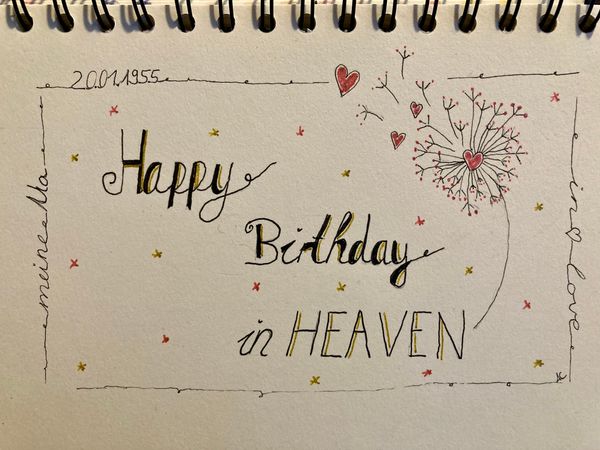 20.01.1955
Happy
Birthday
in HEAVEN
meine Ma
in love